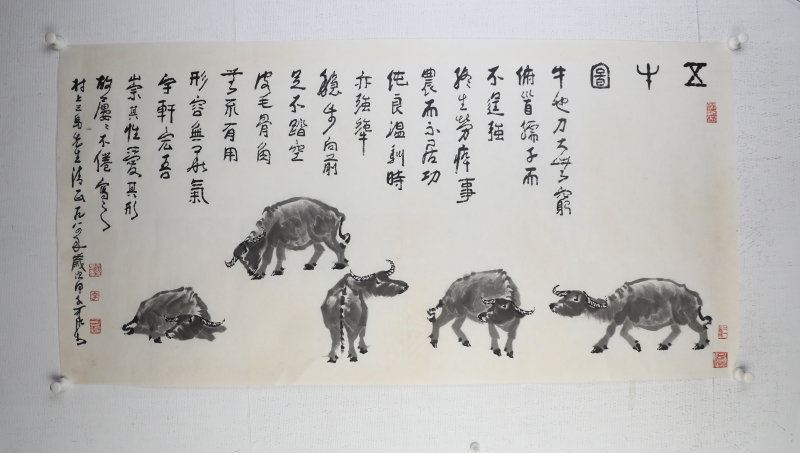 五牛圖
牛也力大無窮
俯首孺子而
不逞強
終生勞瘁事
農而不居功
純良溫馴時
亦強犟
穩步向前
足不踏空
皮毛骨角
無不有用
形容無華氣
宇軒宏吾
崇其性愛其形
故屢々不倦寫之
村上三島先生清正一九八四年歲次甲子可染畫